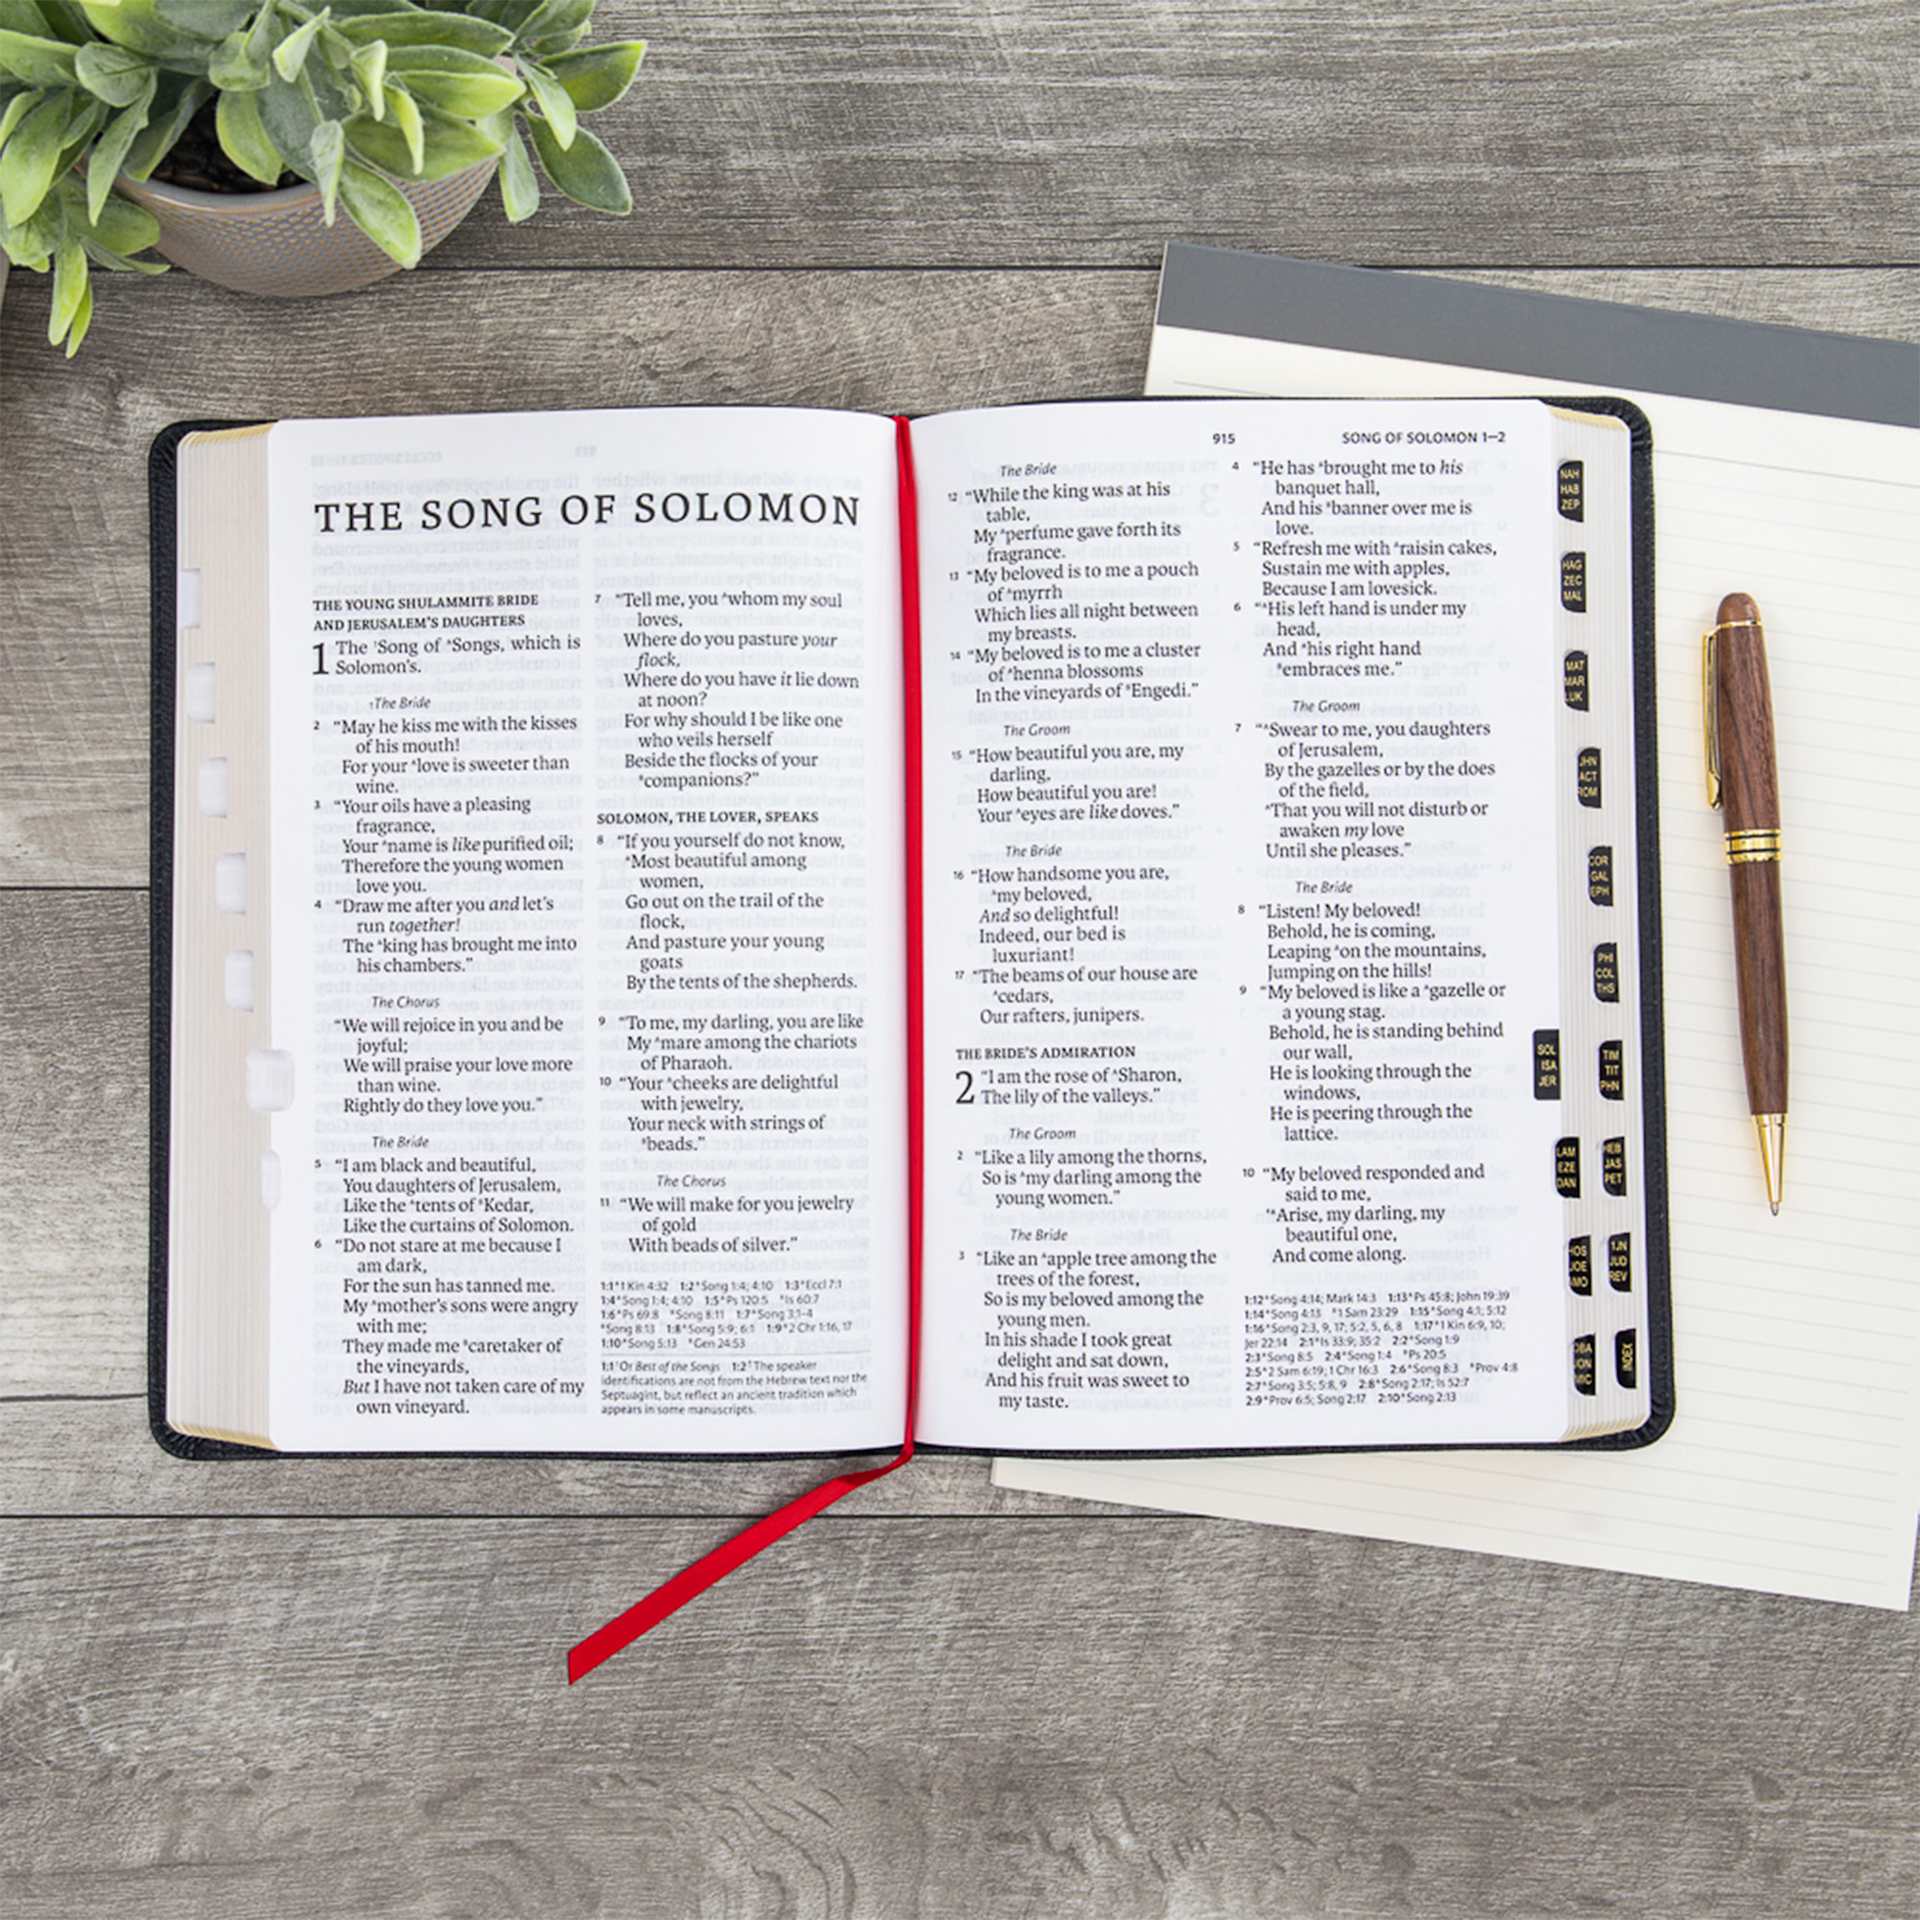 THE SONG OF SOLOMON
THE YOUNG SHULAMMITE BRIDE
AND JERUSALEM'S DAUGHTERS
1 The †Song of ᴬSongs, which is
Solomon's.
†The Bride
2 “May he kiss me with the kisses
of his mouth!
For your ᴬlove is sweeter than
wine.
3 “Your oils have a pleasing
fragrance,
Your ᴬname is like purified oil;
Therefore the young women
love you.
4 “Draw me after you and let's
run together!
The ᴬking has brought me into
his chambers.”
The Chorus
“We will rejoice in you and be
joyful;
We will praise your love more
than wine.
Rightly do they love you.”
The Bride
5 “I am black and beautiful,
You daughters of Jerusalem,
Like the ᴬtents of ᴬKedar,
Like the curtains of Solomon.
6 “Do not stare at me because I
am dark,
For the sun has tanned me.
My ᴬmother's sons were angry
with me;
They made me ᴬcaretaker of
the vineyards,
But I have not taken care of my
own vineyard.
7 “Tell me, you ᴬwhom my soul
loves,
Where do you pasture your
flock,
Where do you have it lie down
at noon?
For why should I be like one
who veils herself
Beside the flocks of your
ᴬcompanions?”
SOLOMON, THE LOVER, SPEAKS
8 “If you yourself do not know,
ᴬMost beautiful among
women,
Go out on the trail of the
flock,
And pasture your young
goats
By the tents of the shepherds.
9 “To me, my darling, you are like
My ᴬmare among the chariots
of Pharaoh.
10 “Your ᴬcheeks are delightful
with jewelry,
Your neck with strings of
ᴬbeads.”
The Chorus
11 “We will make for you jewelry
of gold
With beads of silver.”
1:1 ᴬ1 Kin 4:32 1:2 ᴬSong 1:4; 4:10 1:3 ᴬEccl 7:1
1:4 ᴬSong 1:4; 4:10 1:5 ᴬPs 120:5 ᴬIs 60:7
1:6 ᴬPs 69:8 ᴬSong 8:11 1:7 ᴬSong 3:1-4
ᴬSong 8:13 1:8 ᴬSong 5:9; 6:1 1:9 ᴬ2 Chr 1:16, 17
1:10 ᴬSong 5:13 ᴬGen 24:53
1:1 †Or Best of the Songs 1:2 †The speaker
identifications are not from the Hebrew text nor the
Septuagint, but reflect an ancient tradition which
appears in some manuscripts.
915 SONG OF SOLOMON 1–2
The Bride
12 “While the king was at his
table,
My ᴬperfume gave forth its
fragrance.
13 “My beloved is to me a pouch
of ᴬmyrrh
Which lies all night between
my breasts.
14 “My beloved is to me a cluster
of ᴬhenna blossoms
In the vineyards of ᴬEngedi.”
The Groom
15 “How beautiful you are, my
darling,
How beautiful you are!
Your ᴬeyes are like doves.”
The Bride
16 “How handsome you are,
ᴬmy beloved,
And so delightful!
Indeed, our bed is
luxuriant!
17 “The beams of our house are
ᴬcedars,
Our rafters, junipers.
THE BRIDE'S ADMIRATION
2 “I am the rose of ᴬSharon,
The lily of the valleys.”
The Groom
2 “Like a lily among the thorns,
So is ᴬmy darling among the
young women.”
The Bride
3 “Like an ᴬapple tree among the
trees of the forest,
So is my beloved among the
young men.
In his shade I took great
delight and sat down,
And his fruit was sweet to
my taste.
4 “He has ᴬbrought me to his
banquet hall,
And his ᴬbanner over me is
love.
5 “Refresh me with ᴬraisin cakes,
Sustain me with apples,
Because I am lovesick.
6 “ᴬHis left hand is under my
head,
And ᴬhis right hand
ᴬembraces me.”
The Groom
7 “ᴬSwear to me, you daughters
of Jerusalem,
By the gazelles or by the does
of the field,
ᴬThat you will not disturb or
awaken my love
Until she pleases.”
The Bride
8 “Listen! My beloved!
Behold, he is coming,
Leaping ᴬon the mountains,
Jumping on the hills!
9 “My beloved is like a ᴬgazelle or
a young stag.
Behold, he is standing behind
our wall,
He is looking through the
windows,
He is peering through the
lattice.
10 “My beloved responded and
said to me,
‘ᴬArise, my darling, my
beautiful one,
And come along.
1:12 ᴬSong 4:14; Mark 14:3 1:13 ᴬPs 45:8; John 19:39
1:14 ᴬSong 4:13 ᴬ1 Sam 23:29 1:15 ᴬSong 4:1; 5:12
1:16 ᴬSong 2:3, 9, 17; 5:2, 5, 6, 8 1:17 ᴬ1 Kin 6:9, 10;
Jer 22:14 2:1 ᴬIs 33:9; 35:2 2:2 ᴬSong 1:9
2:3 ᴬSong 8:5 2:4 ᴬSong 1:4 ᴬPs 20:5
2:5 ᴬ2 Sam 6:19; 1 Chr 16:3 2:6 ᴬSong 8:3 ᴬProv 4:8
2:7 ᴬSong 3:5; 5:8, 9 2:8 ᴬSong 2:17; Is 52:7
2:9 ᴬProv 6:5; Song 2:17 2:10 ᴬSong 2:13
NAH
HAB
ZEP
HAG
ZEC
MAL
MAT
MAR
LUK
JHN
ACT
ROM
COR
GAL
EPH
PHI
COL
THS
SOL
ISA
JER
TIM
TIT
PHN
LAM
EZE
DAN
HEB
JAS
PET
HOS
JOE
AMO
1JN
JUD
REV
OBA
JON
MIC
INDEX